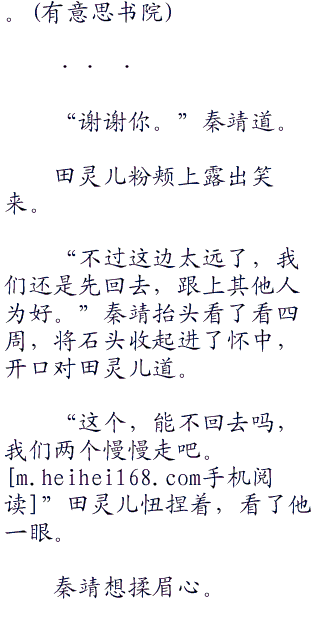 。(有意思书院)
· · ·
“谢谢你。”秦靖道。
田灵儿粉颊上露出笑
来。
“不过这边太远了，我
们还是先回去，跟上其他人
为好。”秦靖抬头看了看四
周，将石头收起进了怀中，
开口对田灵儿道。
“这个，能不回去吗，
我们两个慢慢走吧。
[m.heihei168.com手机阅
读]”田灵儿忸捏着，看了他
一眼。
秦靖想揉眉心。